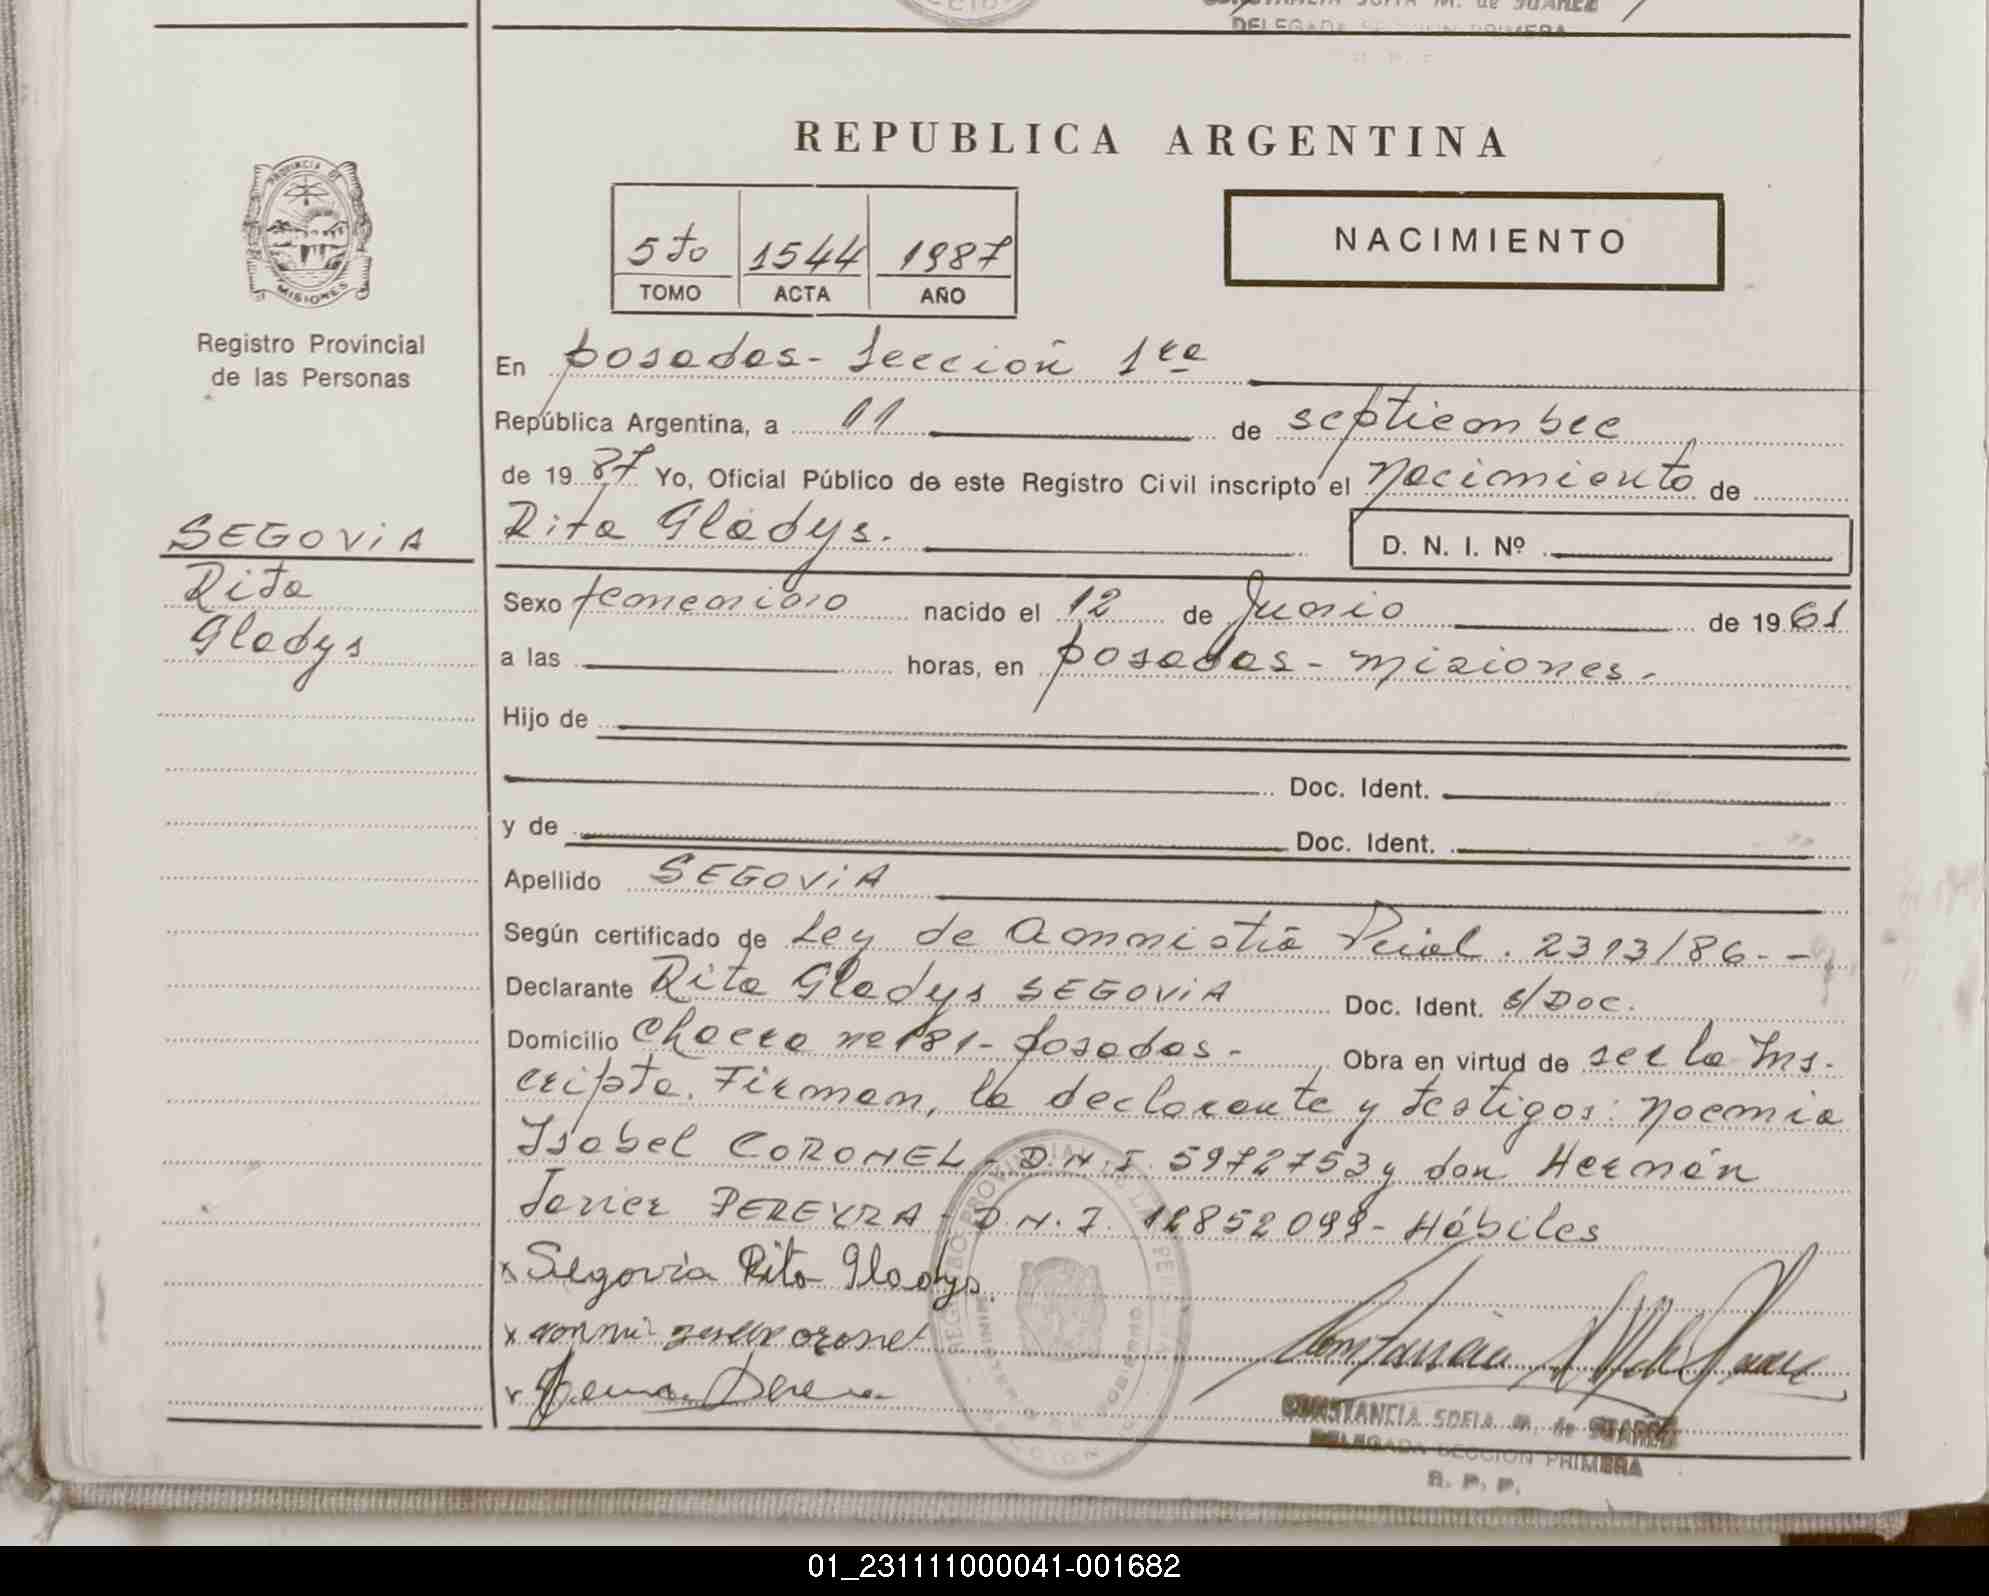 DELEGADA SECCION PRIMERA
REPUBLICA ARGENTINA
PROVINCIA DE
MISIONES
Registro Provincial
de las Personas
5to 1544 1987
TOMO ACTA AÑO
NACIMIENTO
En posadas - Sección 1ra
República Argentina, a 11 de septiembre
de 1987 Yo, Oficial Público de este Registro Civil inscripto el Nacimiento de
Rita Gladys.
D. N. I. Nº
SEGOVIA
Rita
Gladys
Sexo femenino nacido el 12 de Junio de 1961
a las horas, en posadas - misiones.
Hijo de
Doc. Ident.
y de Doc. Ident.
Apellido SEGOVIA
Según certificado de Ley de Amnistía Pcial. 2313/86 - -
Declarante Rita Gladys SEGOVIA Doc. Ident. s/Doc.
Domicilio Chacra nº 181 - posadas - Obra en virtud de ser la Ins-
cripta. Firman, la declarante y testigos: Noemia
Isabel CORONEL - D.N.I. 5972753 y don Hernán
Javier PEREYRA - D.N.I. 12852099 - Hábiles
x Segovia Rita Gladys.
CONSTANCIA SOFIA M. de SUAREZ
DELEGADA SECCION PRIMERA
R. P. P.
01_231111000041-001682